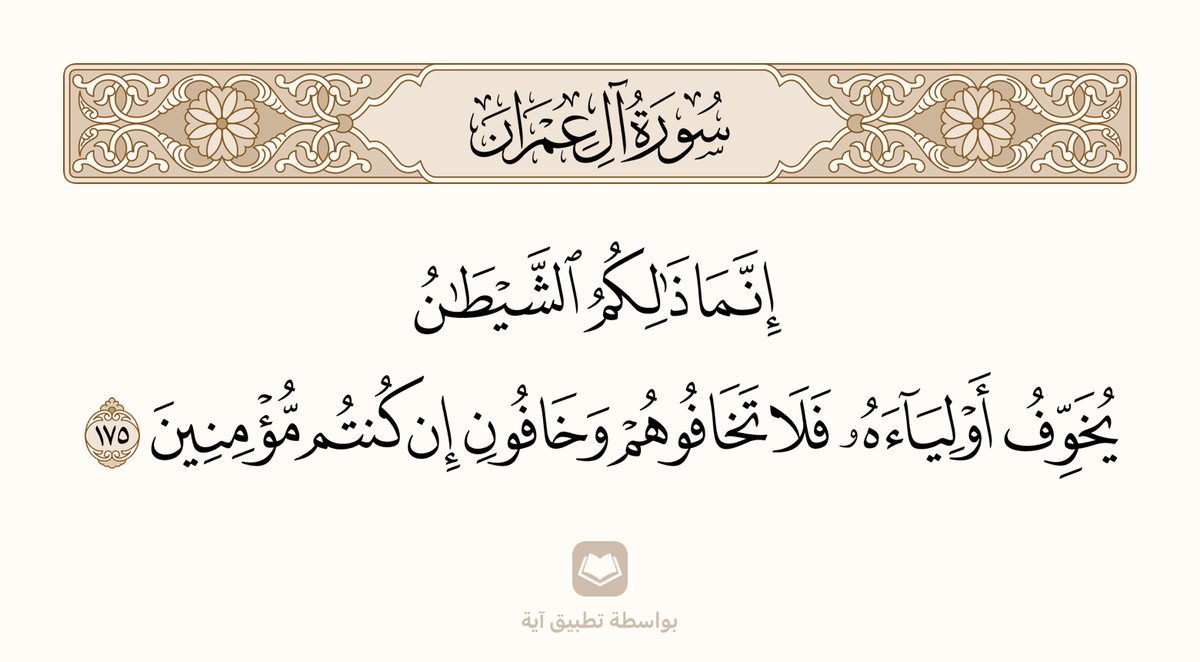 سُورَةُ آلِ عِمْرَان
إِنَّمَا ذَٰلِكُمُ ٱلشَّيْطَـٰنُ
يُخَوِّفُ أَوْلِيَآءَهُۥ فَلَا تَخَافُوهُمْ وَخَافُونِ إِن كُنتُم مُّؤْمِنِينَ ١٧٥
بواسطة تطبيق آية